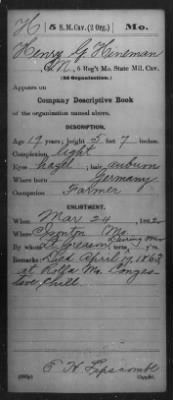 H 5 S.M. Cav. (2 Org.) Mo.
Henry G Hineman
, 5 Reg't Mo. State Mil. Cav.
(2d Organization.)
Appears on
Company Descriptive Book
of the organization named above.
DESCRIPTION.
Age 19 years; height 5 feet 7 inches.
Complexion light
Eyes hazel; hair auburn
Where born Germany
Occupation Farmer
ENLISTMENT.
When Mar 24, 1862
Where Ironton Mo.
By whom Lt term, during war y'rs.
Remarks: Died April 1863
at Rolla Mo. Conges-
tive Chill.
Lipscomb
Copyist.